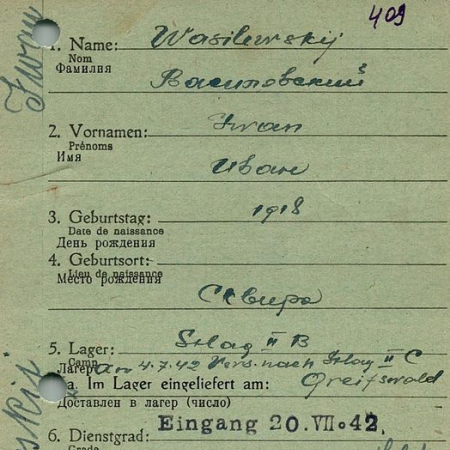 409
1. Name: Wasilewskij
Nom
Фамилия
Василовский
2. Vornamen: Iwan
Prénoms
Имя
Иван
3. Geburtstag: 1918
Date de naissance
День рождения
4. Geburtsort:
Lieu de naissance
Место рождения
Сквира
5. Lager: Stlag II B
Camp
Лагерь
An 4.7.42 Vers. nach Stlag II C
a. Im Lager eingeliefert am: Greifswald
Доставлен в лагер (число)
Eingang 20. VII. 42.
6. Dienstgrad:
Grade
Iwan